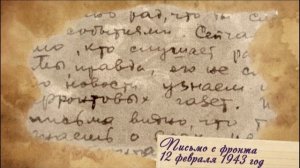 рад, что
событиями. Сейчас
кто слушает
Ты правда, его не
новости узнаем
фронтовых газет.
письма видно, что
Письмо с фронта
12 февраля 1943 год